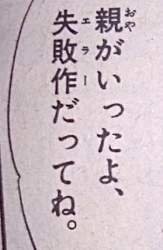 親がいったよ、
失敗作だってね。